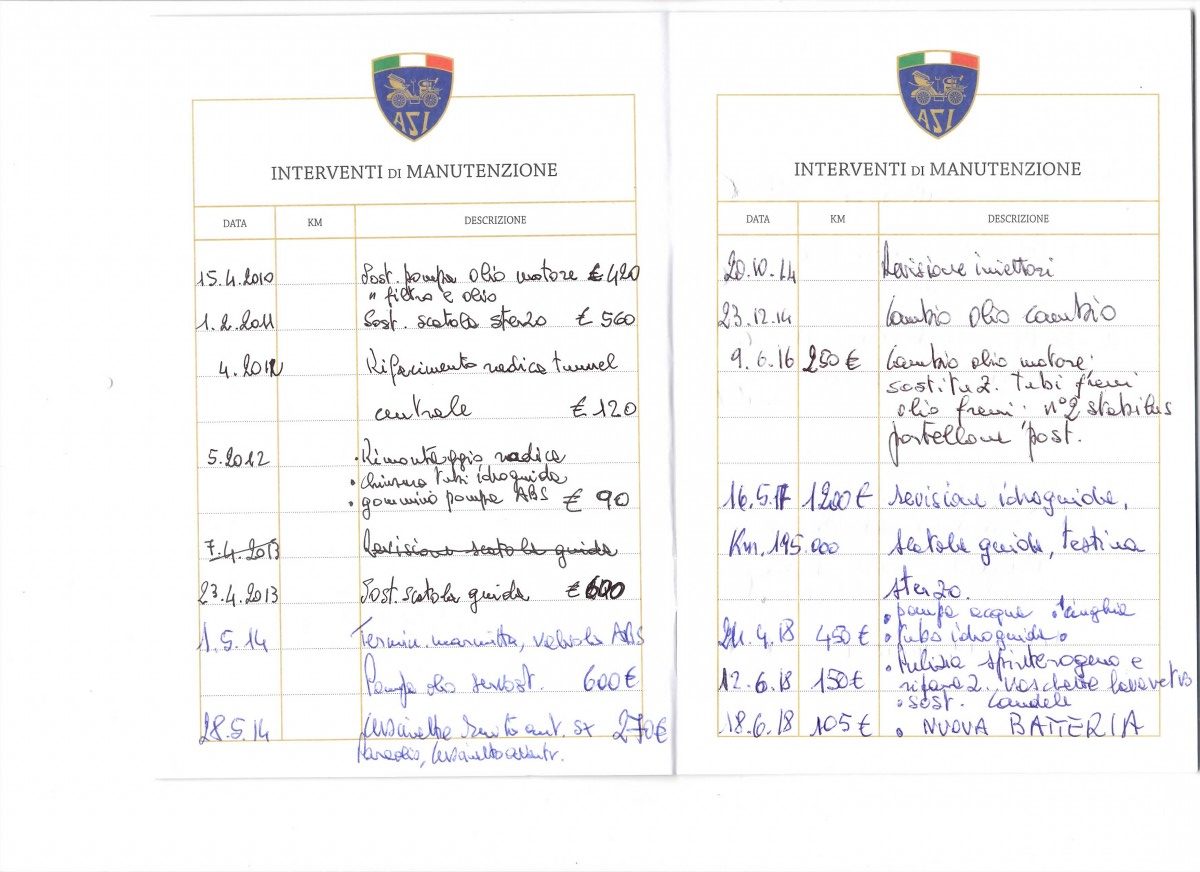 ASI
INTERVENTI DI MANUTENZIONE
DATA KM DESCRIZIONE
15.4.2010 Sost. pompa olio motore € 420
" filtro e olio
1.2.2011 Sost. scatola sterzo € 560
4.2012 Rifacimento radica tunnel
centrale € 120
5.2012 • Rimontaggio radica
• chiusura tubi idroguida
• gommino pompa ABS € 90
7.4.2013 Revisione scatola guida
23.4.2013 Sost. scatola guida € 600
1.5.14 Termin. marmitta, valvola ABS
Pompa olio servost. 600 €
28.5.14 ruota ant. sx 270 €
Paraolio,
ASI
INTERVENTI DI MANUTENZIONE
DATA KM DESCRIZIONE
20.10.14 Revisione iniettori
23.12.14 Cambio olio cambio
9.6.16 250 € Cambio olio motore;
sostituz. tubi freni
olio freni. n°2 stabilus
portellone post.
16.5.17 1200 € revisione idroguida,
Km. 195.000 scatola guida, testina
sterzo.
• pompa acqua • cinghia
21.4.18 450 € • tubo idroguida •
• Pulizia spinterogeno e
12.6.18 150 € riparaz. vaschetta lavavetro
• sost. candele
18.6.18 105 € • NUOVA BATTERIA